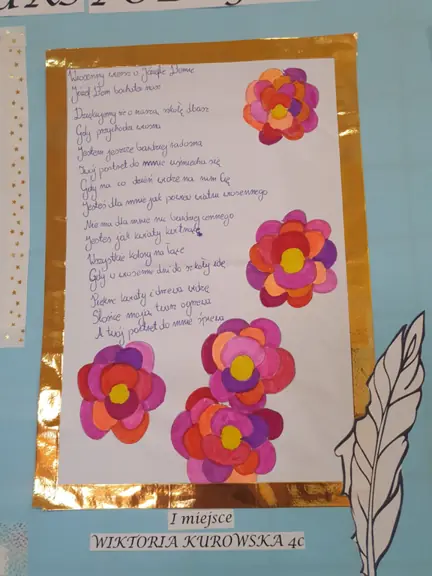 Wiosenny wiersz o Józefie Bemie
Józef Bem bardzo nas
Dziękujemy że o naszą szkołę dbasz
Gdy przychodzi wiosna
Jestem jeszcze bardziej radosna
Twój portret do mnie uśmiecha się
Gdy na co dzień widzę na nim Cię
Jesteś dla mnie jak powiew wiatru wiosennego
Nie ma dla mnie nic bardziej cennego
Jesteś jak kwiaty kwitnące
Wszystkie kolory na łące
Gdy w wiosenne dni do szkoły idę
Piękne kwiaty i drzewa widzę
Słońce moją twarz ogrzewa
A twój portret do mnie śpiewa
I miejsce
WIKTORIA KUROWSKA 4c